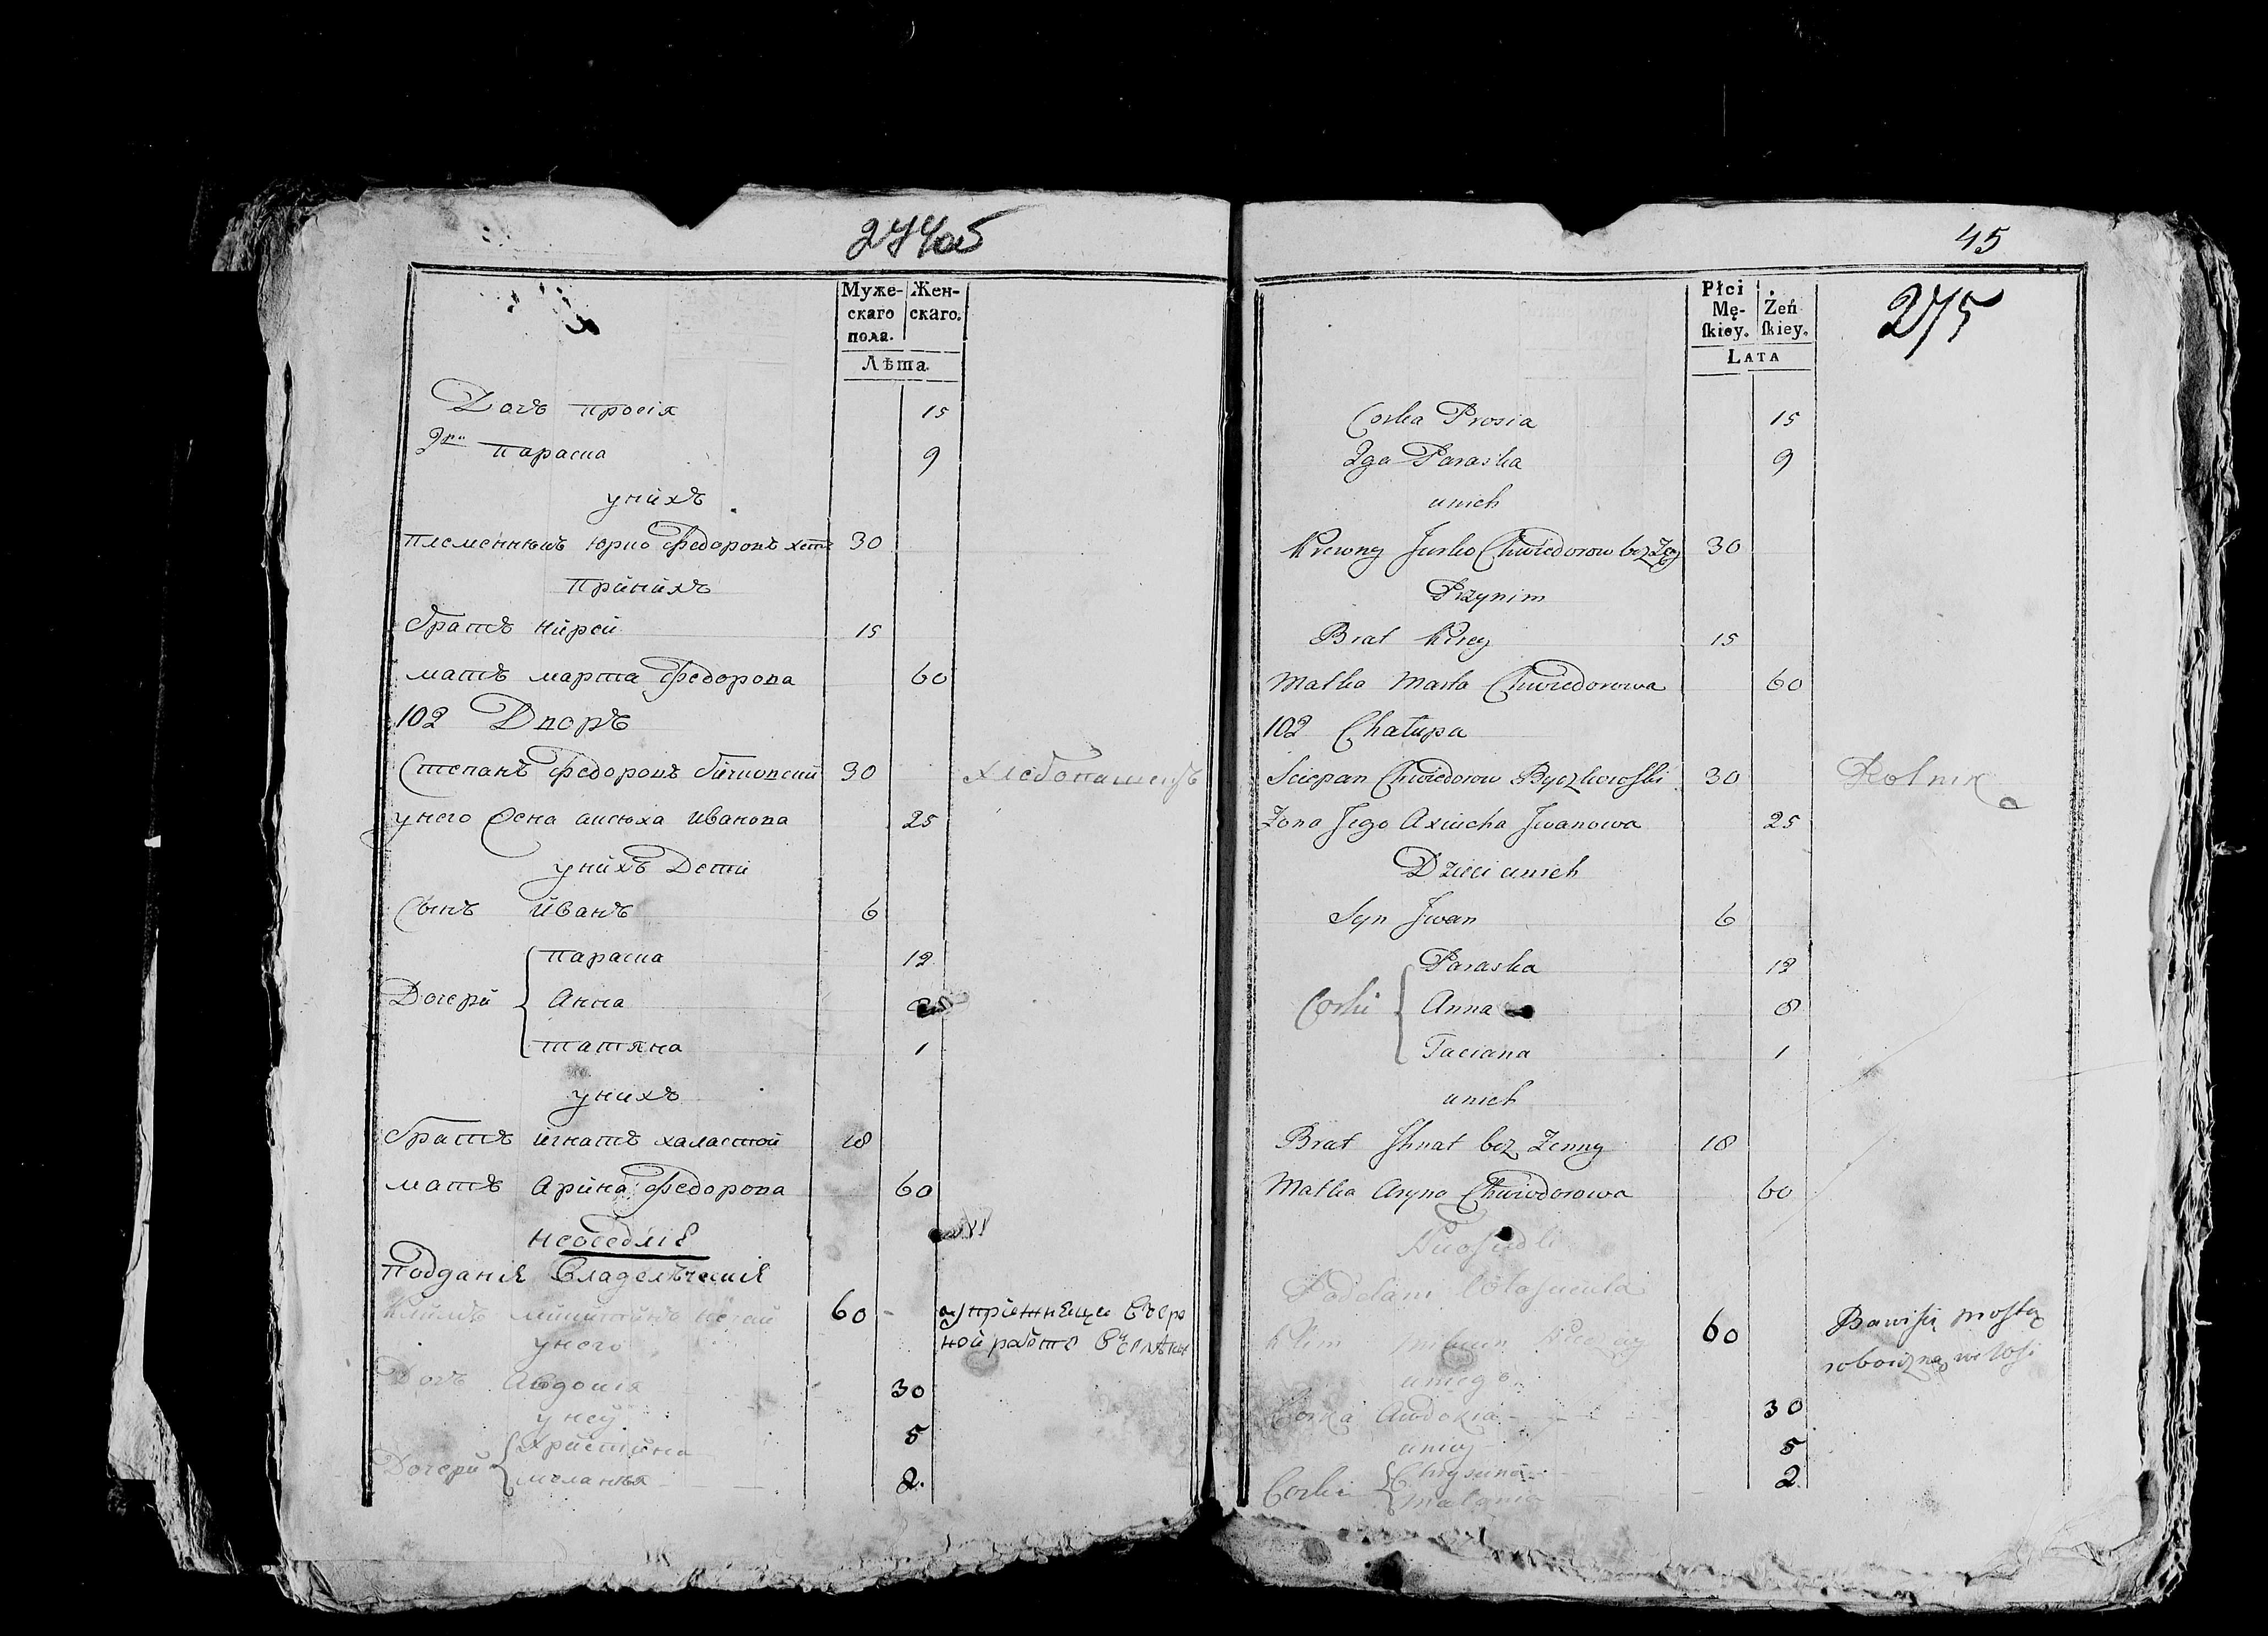 274об
Муже-
скаго
пола.
Жен-
скаго.
Лѣта
Дочь просія 15
2я параска 9
унихъ
племенникъ юрко Федоровъ хол 30
принихъ
братъ кирей 15
мать марта Федорова 60
102 Дворъ
Степанъ Федоровъ бычковский 30 хлебопашецъ
унего жена аксюха иванова 25
унихъ Дети
Сынъ иванъ 6
Дочери
параска 12
Анна
татяна 1
унихъ
братъ игнатъ халастой 18
мать Арина Федорова 60
неоседліе
подданіе Владелческіе
Климъ 60
унего
ной работе
Дочь Авдокія 30
уней
Дочери
христина 5
меланья 2.
45
275
Płci
Mę-
ſkiey.
Żeń
ſkiey.
LATA
Corka Prosia 15
2ga Paraska 9
unich
Krewny Jurko Chwiedorow bez Żony 30
Przynim
Brat Kirey 15
Matka Marta Chwiedorowa 60
102 Chałupa
Sciepan Chwiedorow Byczkowſki 30 Rolnik
Zona Jego Axiucha Jwanowa 25
Dzieci unich
Syn Jwan 6
Corki
Paraska 12
Anna 8
Taciana 1
unich
Brat Jhnat bez Zenny 18
Matka Aryna Chwiedorowa 60
Nieoſiedli
Poddani
Klim 60 Bawiſię proſtą
uniego
robocizną we Wſi
Corka Awdokia 30
uniey
Corki
Chrystina 5
Malania 2.